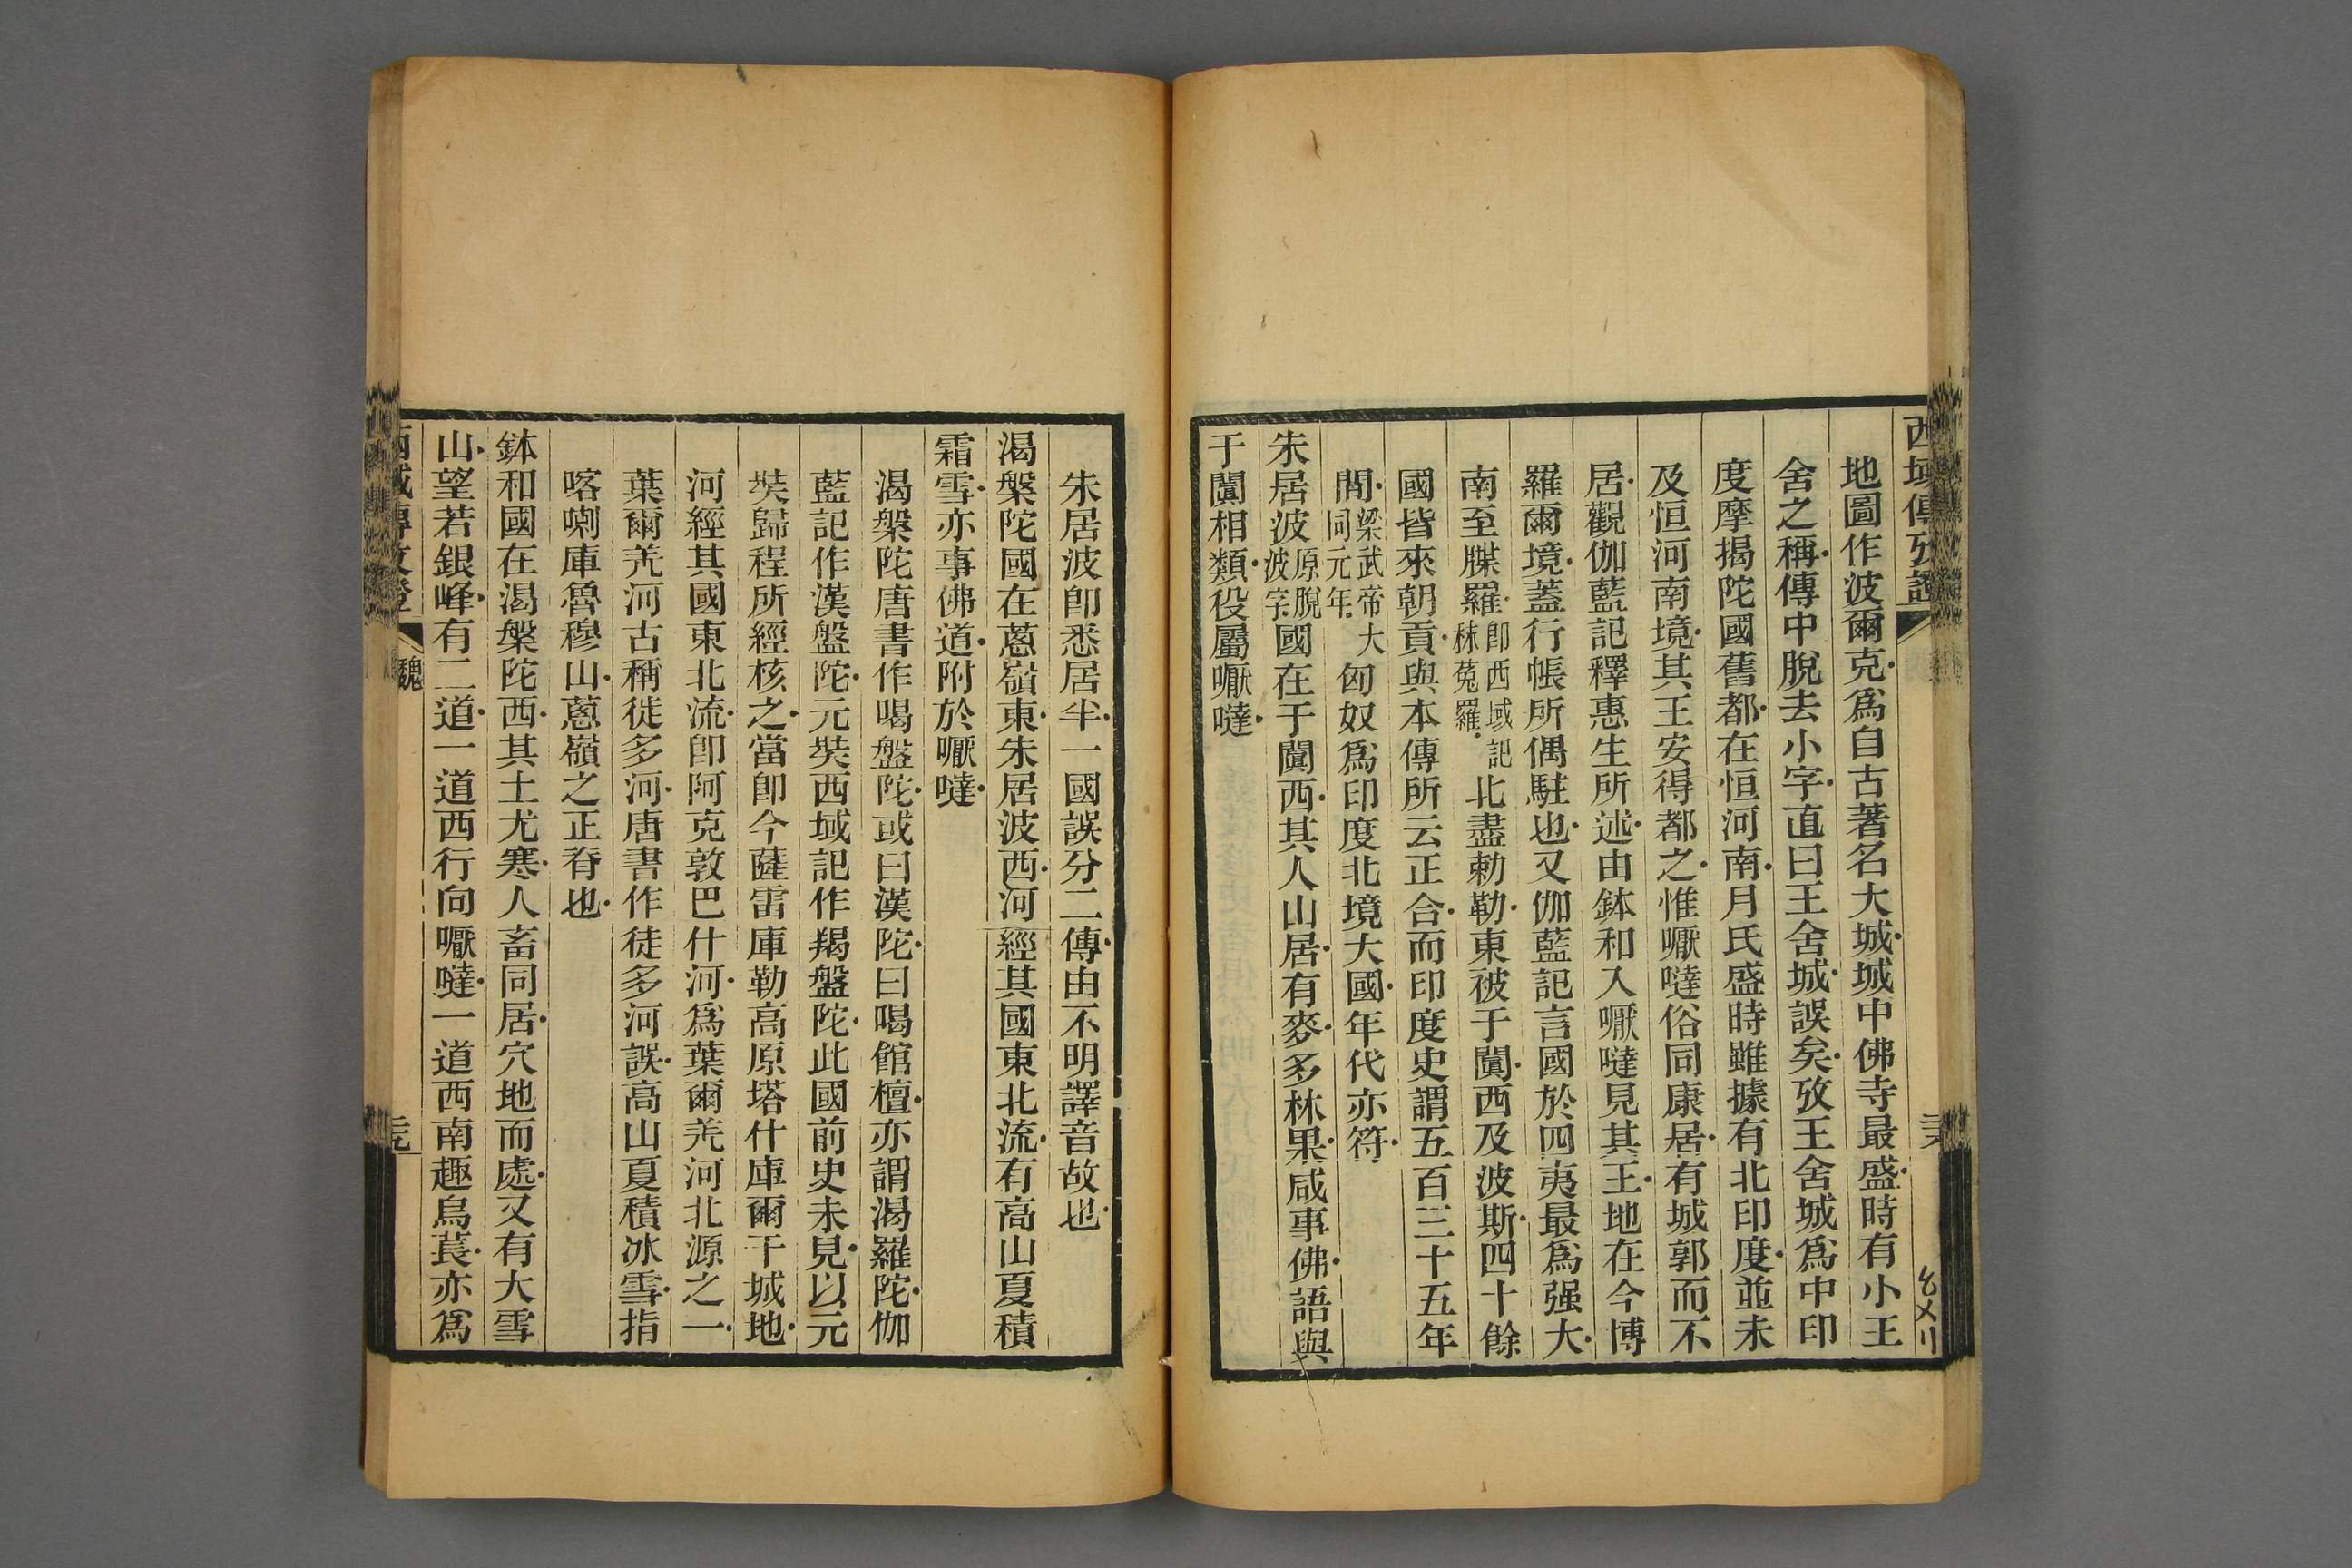 西域傳攷證
地圖作波爾克爲自古著名大城城中佛寺最盛時有小王
舍之稱傳中脫去小字直曰王舍城誤矣攷王舍城爲中印
度摩揭陀國舊都在恒河南月氏盛時雖據有北印度並未
及恒河南境其王安得都之惟嚈噠俗同康居有城郭而不
居觀伽藍記釋惠生所述由鉢和入嚈噠見其王地在今博
羅爾境蓋行帳所偶駐也又伽藍記言國於四夷最爲强大
南至牒羅卽西域記秣菟羅北盡勅勒東被于闐西及波斯四十餘
國皆來朝貢與本傳所云正合而印度史謂五百三十五年
間梁武帝大同元年匈奴爲印度北境大國年代亦符
朱居波原脫波字國在于闐西其人山居有麥多林果咸事佛語與
于闐相類役屬嚈噠
朱居波卽悉居半一國誤分二傳由不明譯音故也
渴槃陀國在蔥嶺東朱居波西河經其國東北流有高山夏積
霜雪亦事佛道附於嚈噠
渴槃陀唐書作喝盤陀或曰漢陀曰喝館檀亦謂渴羅陀伽
藍記作漢盤陀元奘西域記作羯盤陀此國前史未見以元
奘歸程所經核之當卽今薩雷庫勒高原塔什庫爾干城地
河經其國東北流卽阿克敦巴什河爲葉爾羌河北源之一
葉爾羌河古稱徙多河唐書作徒多河誤高山夏積冰雪指
喀喇庫魯穆山蔥嶺之正脊也
鉢和國在渴槃陀西其土尤寒人畜同居穴地而處又有大雪
山望若銀峰有二道一道西行向嚈噠一道西南趣烏萇亦爲
西域傳攷證
魏